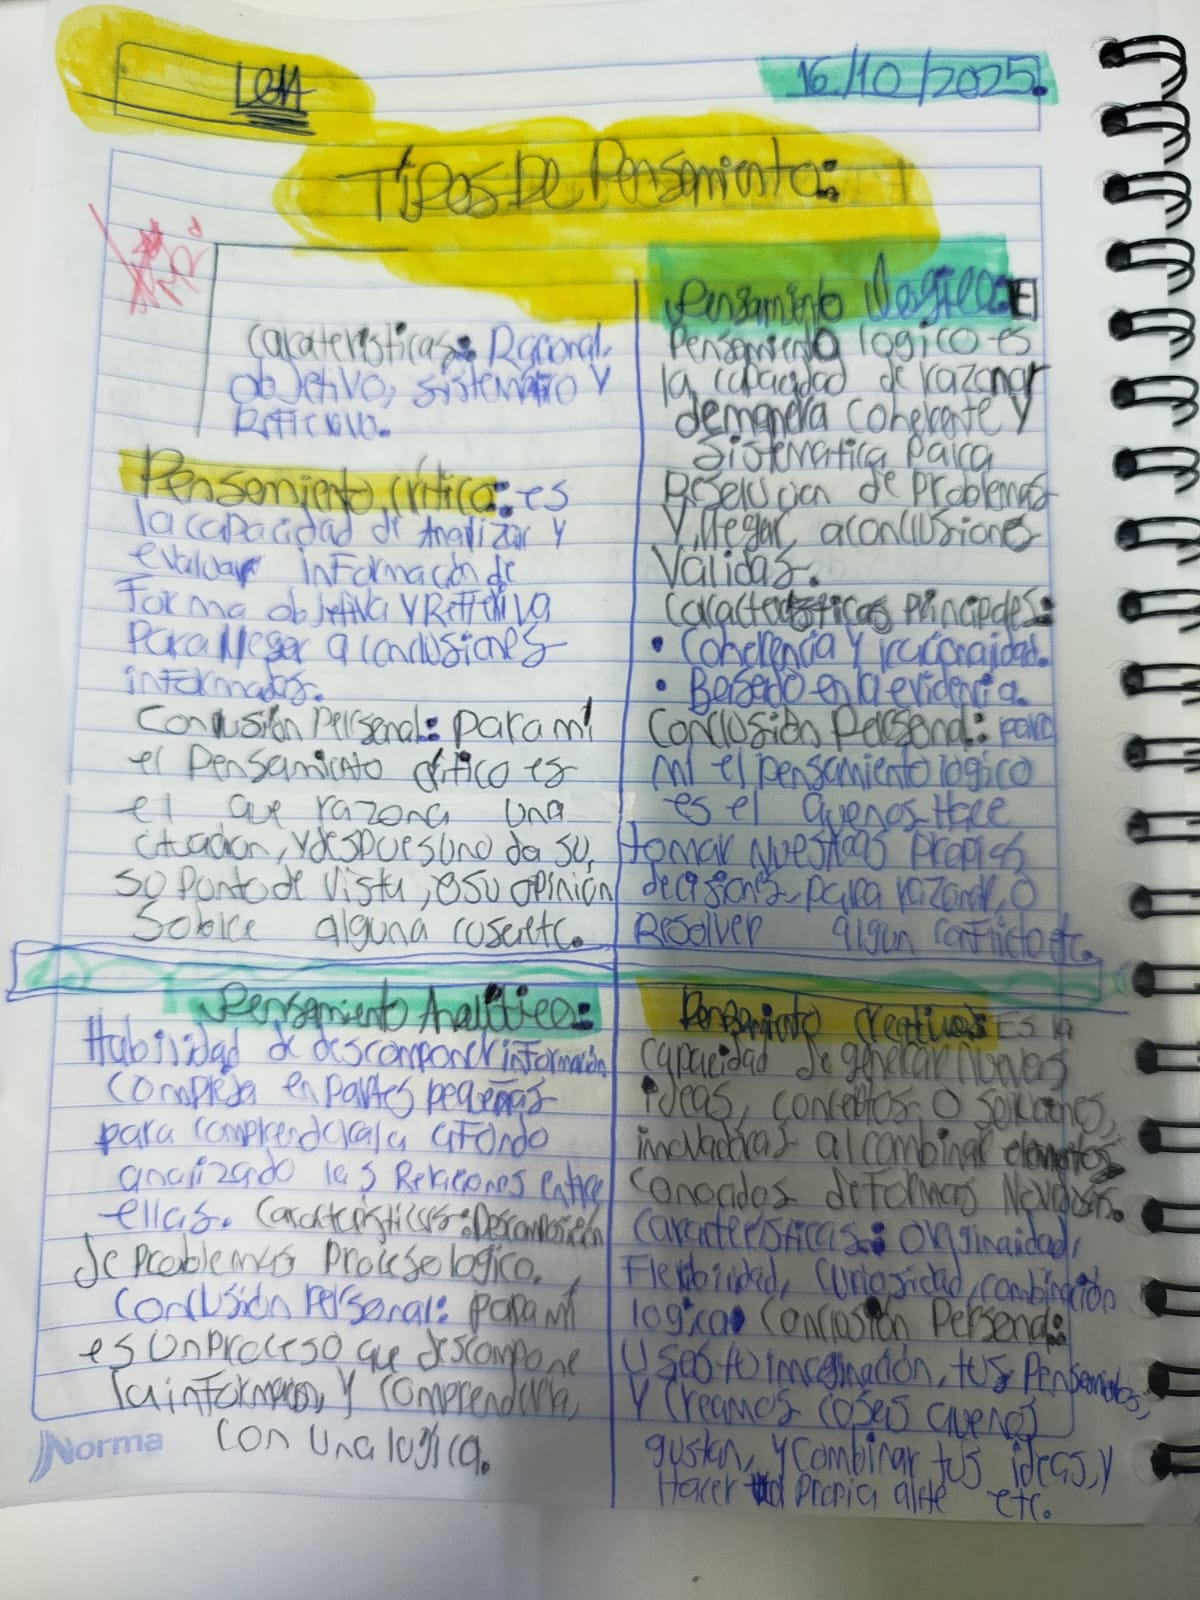 LeM
16/10/2025.
Tipos De Pensamiento:
caracteristicas: Racional,
objetivo, sistematico y
Reflexivo.
Pensamiento crítico: es
la capacidad de analizar y
evaluar información de
forma objetiva y Reflexiva
para llegar a conclusiones
informados.
Conclusión Personal: para mi
el Pensamiento crítico es
el que razona una
cituacion, y despues uno da su,
su punto de vista, o su opinión
sobre alguna cosa etc.
Pensamiento logico: El
Pensamiento logico es
la capacidad de razonar
de manera coherente y
sistematica para
Resolucion de problemas
y llegar a conclusiones
validas.
caracteristicas principales:
• Coherencia y racionalidad.
• Basado en la evidencia.
Conclusión Personal: para
mi el pensamiento logico
es el que nos Hace
tomar nuestras propias
decisiones para razonar, o
Resolver algun conflicto etc.
Pensamiento Analitico:
Habilidad de descomponer información
compleja en partes pequeñas
para comprenderla a fondo
analizado las Relaciones entre
ellas. Caracteristicas: Descomposición
de problemas proceso logico.
Conclusión Personal: para mi
es un proceso que descompone
la informacion, y comprenderla,
con una logica.
Pensamiento creativo: Es la
capacidad de generar nuevas
ideas, conceptos o soluciones,
innovadoras al combinar elementos
conocidos de formas Novosas.
caracteristicas: originalidad,
Flexibilidad, curiosidad, combinación
logica. Conclusión Personal:
Uses tu imaginación, tus Pensamientos,
y creamos cosas que nos
gustan, y combinar tus ideas, y
Hacer tu propia arte etc.
Norma